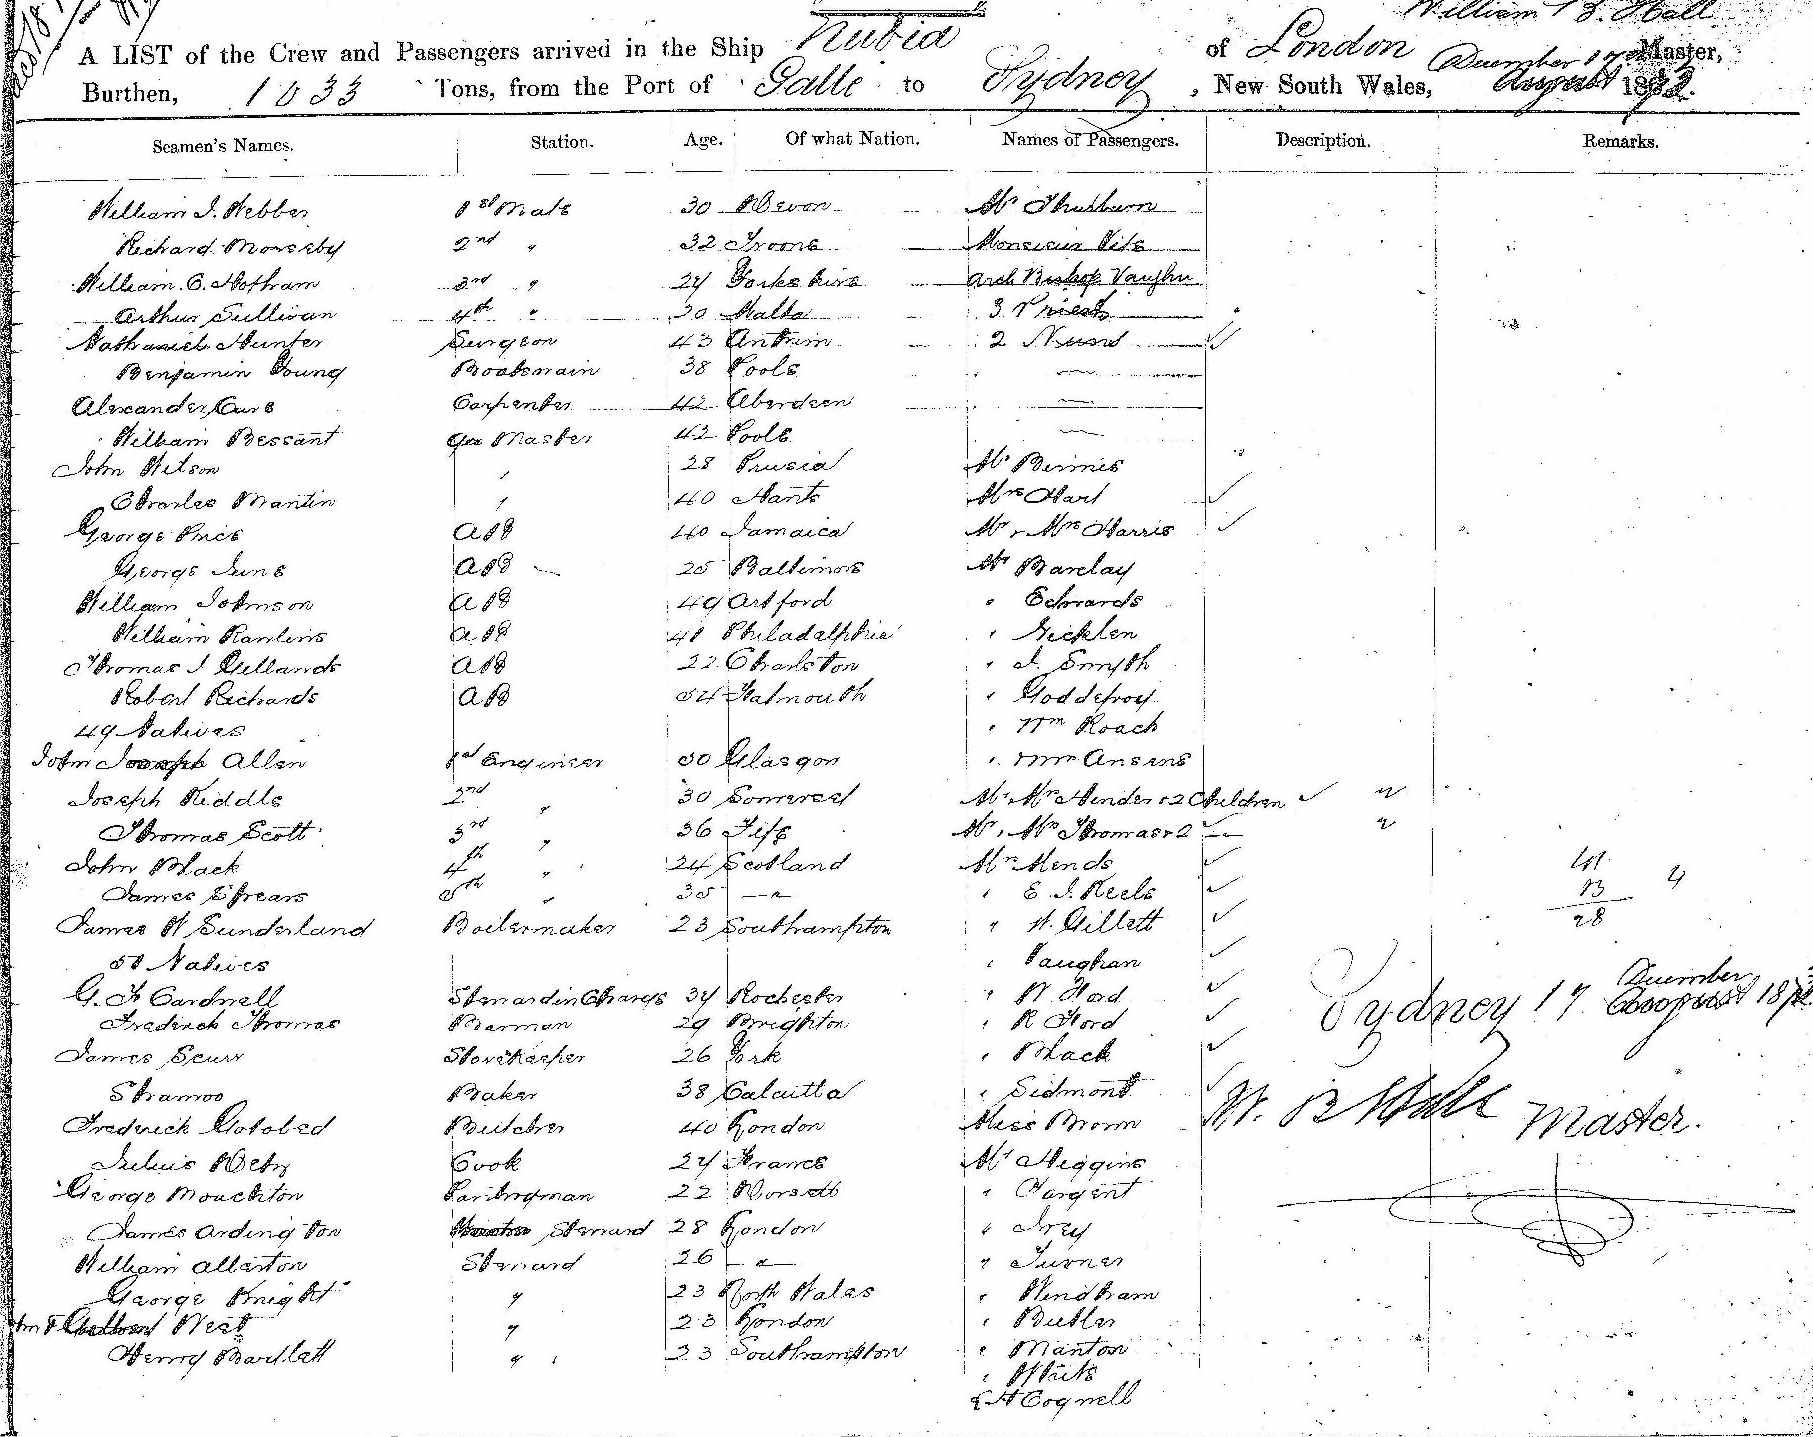 William B. Hall
A LIST of the Crew and Passengers arrived in the Ship Nubia of London Master,
December 17
Burthen, 1033 Tons, from the Port of Galle to Sydney, New South Wales, August 1873.
Seamen's Names. Station. Age. Of what Nation. Names of Passengers. Description. Remarks.
William J. Webber 1st Mate 30 Devon Mr Thurburn
Richard Moresby 2nd " 32 Monsieur
William C. Hotham 3rd " 24 Yorkshire Arch Bishop Vaughn
Arthur Sullivan 4th " 30 Malta 3 Priests
Nathaniel Hunter Surgeon 43 Antrim 2 Nuns
Benjamin Young Boatswain 38 Poole
Alexander Carpenter 42 Aberdeen
William Bessant Qr Master 42 Poole
John Wilson " 28 Prusia Mr
Charles Mantin " 40 Hants Mrs Hart
George Price AB 40 Jamaica Mr & Mrs Harris
George June AB 25 Baltimore Mr Barclay
William Johnson AB 49 " Edwards
William Rawlins AB 41 Philadalphia "
Thomas J Gellands AB 22 Charlston " J. Smyth
Robert Richards AB 54 Falmouth " Goddefroy
49 Natives " Wm Roach
John Joseph Allen 1st Engineer 50 Glasgow "
Joseph Riddle 2nd " 30 Somerset Mr Mrs Hender & 2 Children "
Thomas Scott 3rd " 36 Fife Mr & Mrs Thomas & 2 "
John Black 4th " 24 Scotland Mr Mends
James Spears 5th " 35 — " — "
13
28
James W Sunderland Boilermaker 23 Southampton " W. Gillett
51 Natives " Vaughan
G. F. Cardwell Steward in Charge 34 Rochester " W Ford
December
Sydney 17 August 187
Fredrick Thomas Barman 29 Brighton " R Ford
James Scurr Storekeeper 26 York " Black
Stramoo Baker 38 Calcutta " Sidmont
W. B Hall Master.
Frederick Gotobed Butcher 40 London Miss Brown
Julius Cook 24 France Mr Higgins
George Mouckton Pantryman 22 Dorset " Targent
James Ardington Steward 28 London "
William Allerton Steward 26 — " — " Turner
George Knight " 23 North Wales " Windham
West " 23 London " Butler
Henry Bartlett " 23 Southampton " Manton
" White
Cogwell